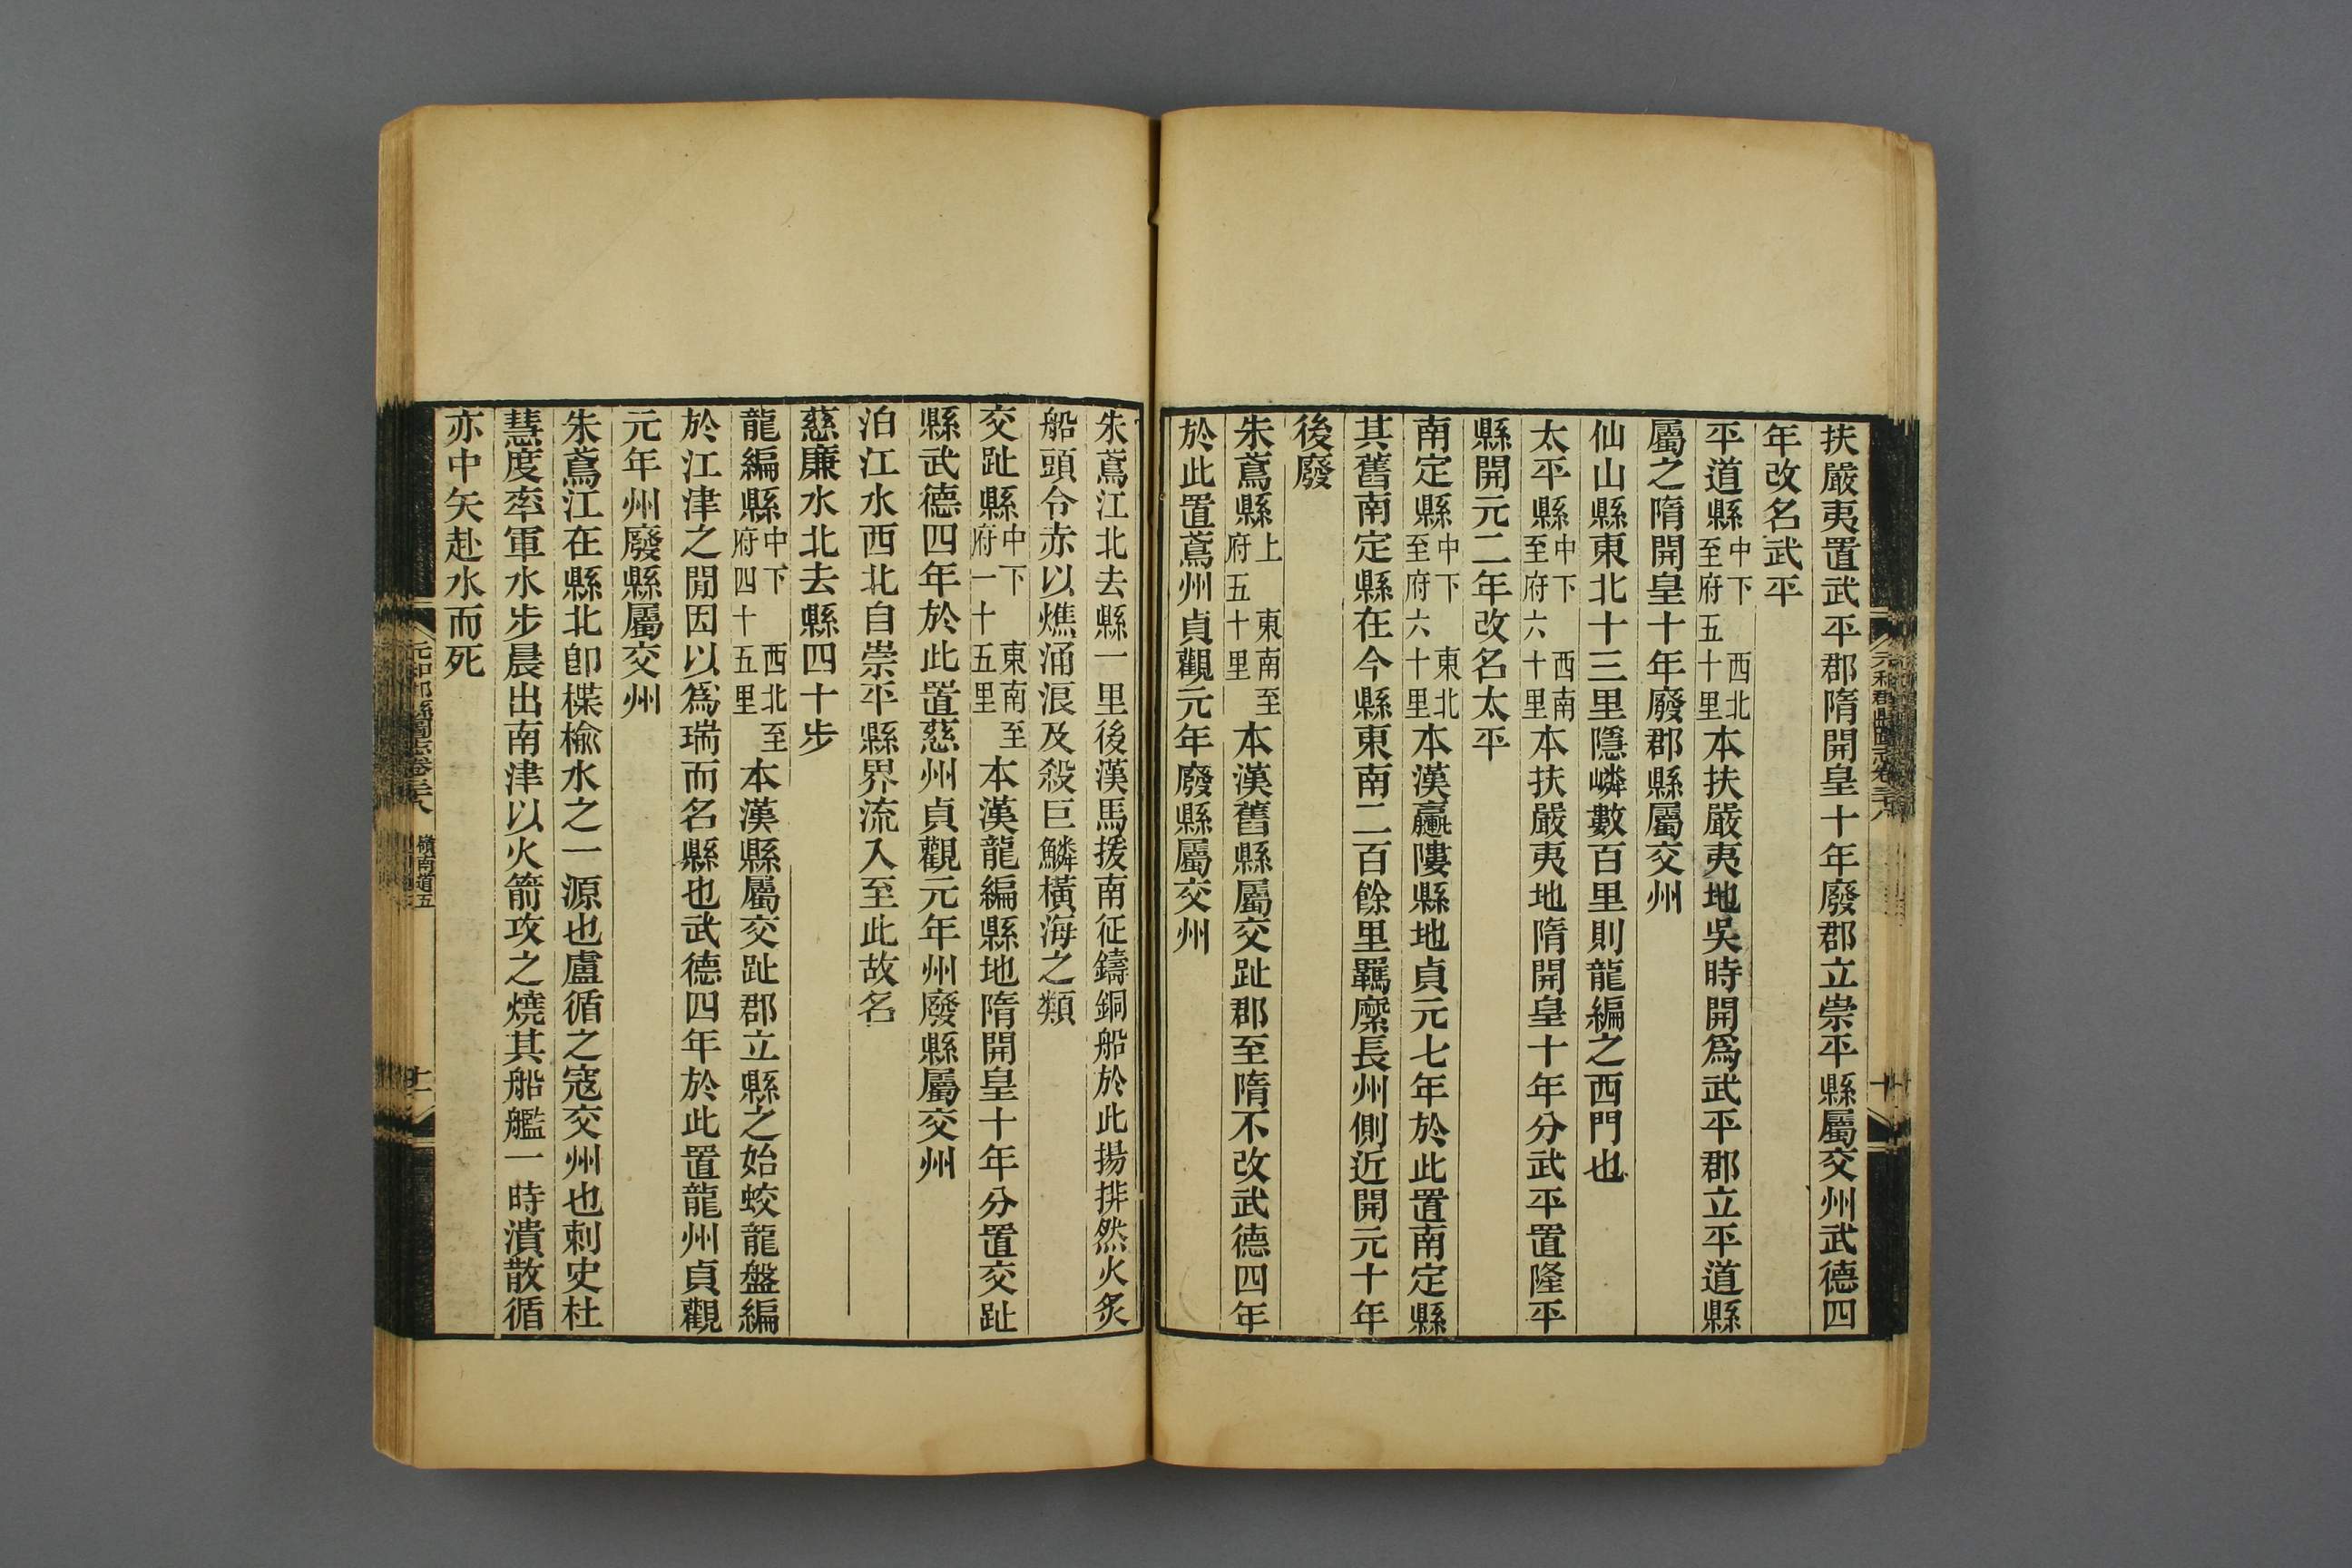 扶嚴夷置武平郡隋開皇十年廢郡立崇平縣屬交州武德四
年改名武平
平道縣中下 西北至府五十里本扶嚴夷地吳時開爲武平郡立平道縣
屬之隋開皇十年廢郡縣屬交州
仙山縣東北十三里隱嶙數百里則龍編之西門也
太平縣中下 西南至府六十里本扶嚴夷地隋開皇十年分武平置隆平
縣開元二年改名太平
南定縣中下 東北至府六十里本漢羸𨻻縣地貞元七年於此置南定縣
其舊南定縣在今縣東南二百餘里羈縻長州側近開元十年
後廢
朱鳶縣上 東南至府五十里本漢舊縣屬交趾郡至隋不改武德四年
於此置鳶州貞觀元年廢縣屬交州
元和郡縣圖志卷三十八
十
朱鳶江北去縣一里後漢馬援南征鑄銅船於此揚排然火炙
船頭令赤以燋涌浪及殺巨鱗橫海之類
交趾縣中下 東南至府一十五里本漢龍編縣地隋開皇十年分置交趾
縣武德四年於此置慈州貞觀元年州廢縣屬交州
泊江水西北自崇平縣界流入至此故名
慈廉水北去縣四十步
龍編縣中下 西北至府四十五里本漢縣屬交趾郡立縣之始蛟龍盤編
於江津之閒因以爲瑞而名縣也武德四年於此置龍州貞觀
元年州廢縣屬交州
朱鳶江在縣北卽楪榆水之一源也盧循之寇交州也刺史杜
慧度率軍水步晨出南津以火箭攻之燒其船艦一時潰散循
亦中矢赴水而死
元和郡縣圖志卷三十八 嶺南道五
十一